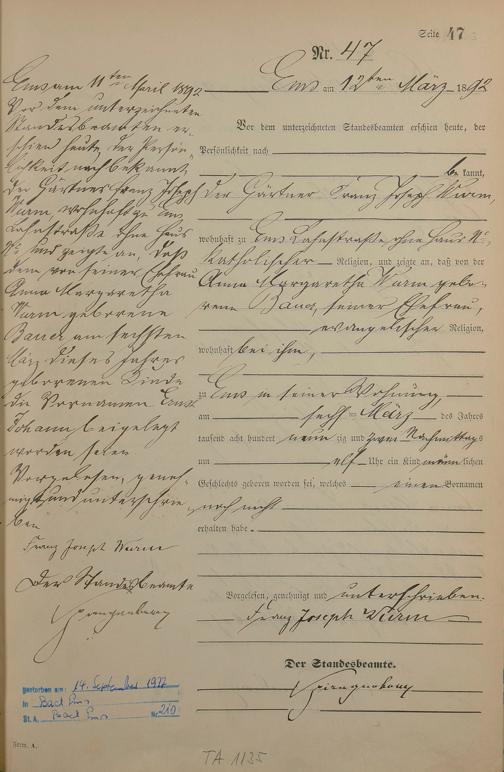 Seite 47
Nr. 47
Ems am 12ten März 1892
Vor dem unterzeichneten Standesbeamten erschien heute, der
Persönlichkeit nach
bekannt,
der Gärtner Franz Joseph Wurm,
wohnhaft zu Ems Lahnstraße ohne Haus No,
katholischer Religion, und zeigte an, daß von der
Anna Margaretha Wurm gebo-
rene Bauer, seiner Ehefrau,
evangelischer Religion,
wohnhaft bei ihm,
zu Ems in seiner Wohnung
am sechsten März des Jahres
tausend acht hundert neunzig und zwei Nachmittags
um elf Uhr ein Kind männlichen
Geschlechts geboren worden sei, welches einen Vornamen
noch nicht
erhalten habe.
Vorgelesen, genehmigt und unterschrieben.
Franz Joseph Wurm
Der Standesbeamte.
Ems am 11ten April 1892
Vor dem unterzeichneten
Standesbeamten er-
schien heute, der Persön-
lichkeit nach bekannt,
der Gärtner Franz Joseph
Wurm, wohnhaft zu Ems
Lahnstraße ohne Haus
No und zeigte an, daß
dem von seiner Ehefrau
Anna Margaretha
Wurm geborene
Bauer am sechsten
März dieses Jahres
geborenen Kinde
die Vornamen Ernst
Johann beigelegt
worden seien
Vorgelesen, geneh-
migt und unterschrie-
ben
Franz Joseph Wurm
Der Standesbeamte
gestorben am: 14. September 1977
in Bad Ems
St. A. Bad Ems Nr. 210
Form. A.
TA 1135